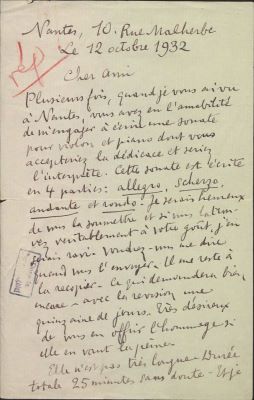 Nantes, 10. Rue Malherbe
Le 12 octobre 1932
rép
Cher Ami
Plusieurs fois, quand je vous ai vu
à Nantes, vous avez eu l'amabilité
de m'engager à écrire une sonate
pour violon et piano dont vous
accepteriez la dédicace et seriez
l'interprète. Cette sonate est écrite
en 4 parties: allegro, Scherzo,
andante et rondo. Je serais heureux
de vous la soumettre et si vous la trou-
vez véritablement à votre goût, j'en
serais ravi. Voudrez-vous me dire
quand vous l'envoyer. Il me reste à
la recopier. Ce qui demandera bien
encore - avec la revision une
quinzaine de jours. Très désireux
de vous en offrir l'hommage si
elle en vaut la peine.
Elle n'est pas très longue - Durée
totale 25 minutes sans doute -